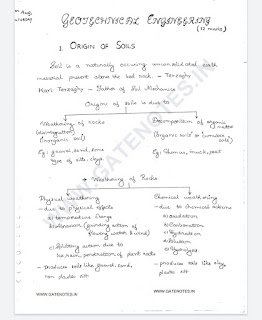 GEOTECHNICAL ENGINEERING
(12 marks)
1. ORIGIN OF SOILS
Soil is a naturally occuring unconsolidated earth
material present above the bed rock. - Terzaghi
Karl Terzaghi - Father of Soil Mechanics
Origin of soil is due to
Weathering of Rocks
(disintegration)
(inorganic soil)
Eg: gravel, sand, some
type of silts, clays
Decomposition of organic
matter
(organic soils or cumulose
soils)
Eg: Humus, muck, peat
Weathering of Rocks
Physical weathering
- due to physical effects
a) temperature change
b) Abrasion (grinding action of
flowing water & wind)
c) Splitting action due to
ice, rain, penetration of plant roots
- Produces soils like gravel, sand,
non plastic silt
Chemical weathering
- due to chemical actions
a) oxidation
b) Carbonation
c) Hydration
d) Solution
e) Hydrolysis
- produces soils like clay,
plastic silt
WWW.GATENOTES.IN
WWW.GATENOTES.IN
WWW.GATENOTES.IN